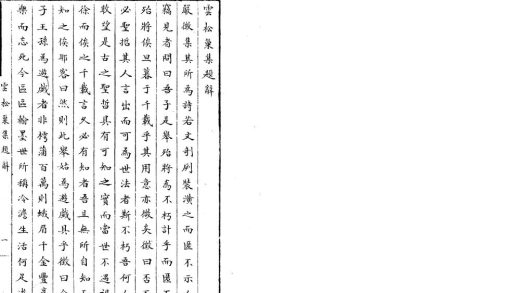 雲松巢集題辭
嚴徵集其所為詩若文剞劂裝潢之而匿不示人
竊見者問曰吾子是舉殆將為不朽計乎而匿不
殆將俟旦暮于千載乎其用意亦微矣徵曰否不
必聖哲其人言出而可為世法者斯不朽吾何人
敢望是古之聖哲具有可知之實而當世不遇诏
徐而俟之千載言久必有知者吾且無所自知又
知之俟耶客曰然則此舉姑為遊戲具乎徵曰今
子王孫為遊戲者非樗蒲百萬則蛾眉千金豐亨
樂而忘死今區區翰墨世所稱冷澹生活何足
雲松巢集題辭
一